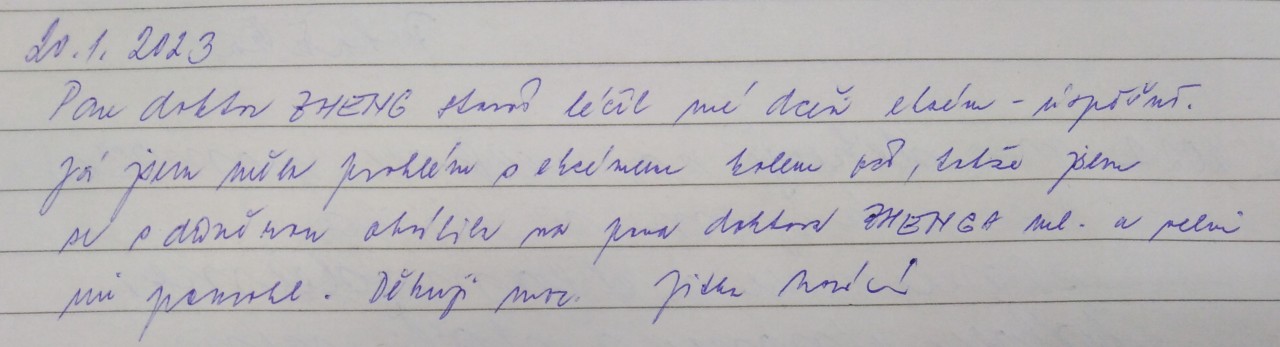 20.1. 2023
Pan doktor ZHENG starší léčil mé dceři ekzém - úspěšně.
Já jsem měla problém s ekzémem kolem očí, takže jsem
se s důvěrou obrátila na pana doktora ZHENGA ml. a velmi
mi pomohl. Děkuji moc. Jitka